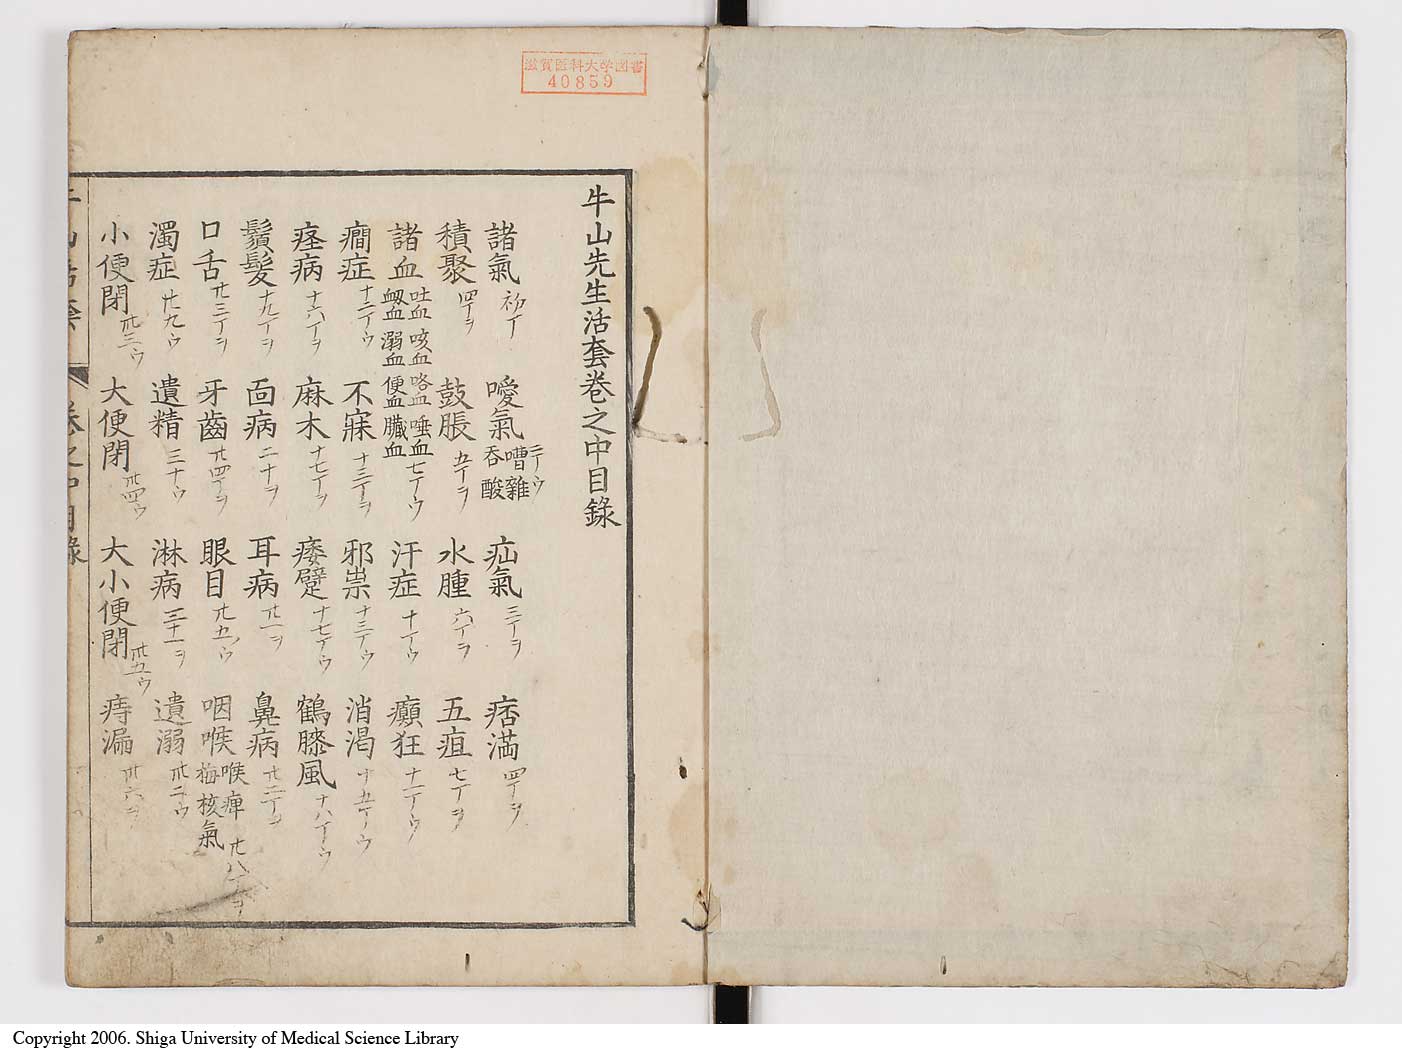 滋賀医科大学図書
40859
牛山先生活套巻之中目録
諸氣 初丁 噯氣 三丁ウ 嘈雜 呑酸 疝氣 三丁ヲ 痞満 四丁ヲ
積聚 四丁ヲ 鼓脹 五丁ヲ 水腫 六丁ヲ 五疸 七丁ヲ
諸血 吐血 咳血 咯血 唾血 衂血 溺血 便血 臓血 七丁ウ 汗症 十丁ウ 癲狂 十一丁ウ
癇症 十二丁ウ 不寐 十三丁ヲ 邪祟 十三丁ウ 消渇 十五丁ウ
痓病 十六丁ヲ 麻木 十七丁ヲ 痿躄 十七丁ウ 鶴膝風 十八丁ウ
鬚髮 十九丁ヲ 面病 二十ヲ 耳病 廿一ヲ 鼻病 廿二丁ヲ
口舌 廿三丁ヲ 牙齒 廿四丁ヲ 眼目 廿五ウ 咽喉 喉痺 梅核氣 廿八丁ヲ
濁症 廿九ウ 遺精 三十ウ 淋病 三十一ヲ 遺溺 卅二ウ
小便閉 卅三ウ 大便閉 卅四ウ 大小便閉 卅五ウ 痔漏 卅六ヲ
巻之中目録
Copyright 2006. Shiga University of Medical Science Library